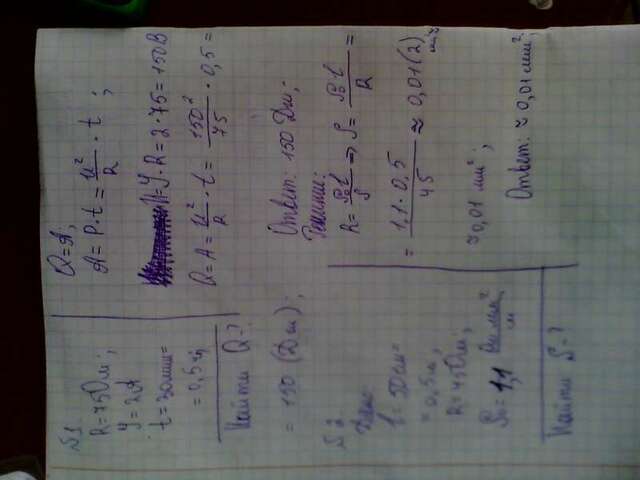 №1
R = 75 Ом;
У = 2А
t = 30 мин =
= 0,5 ч;
Найти Q-?
Q = A;
A = P · t = u²/R · t;
= У · R = 2 · 75 = 150 В
Q = A = u²/R · t = 150²/75 · 0,5 =
= 150 (Дж);
Ответ: 150 Дж;
№2
Дано:
l = 50 см =
= 0,5 м;
R = 45 Ом;
= 1,1 Ом·мм²/м
Найти S-?
Решение:
R = l/S => S = l/R =
= 1,1 · 0,5/45 ≈ 0,01(2)
≈ 0,01 мм²;
Ответ: ≈ 0,01 мм²;